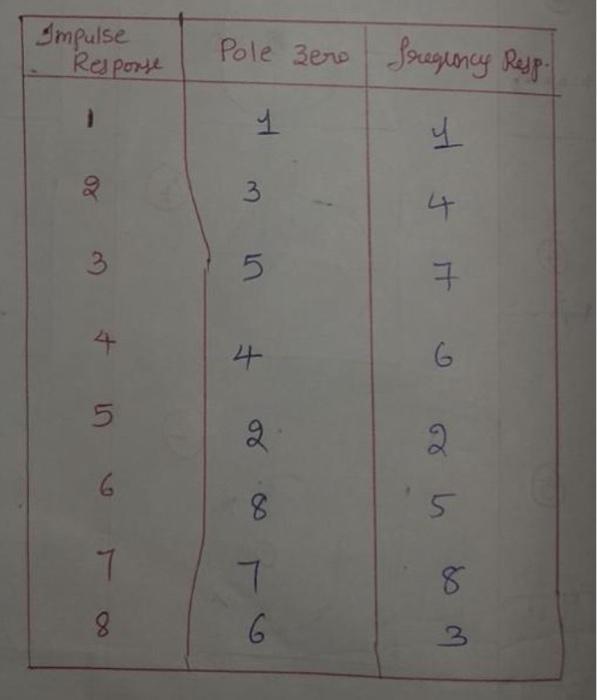 Impulse Response Pole Zero frequency Resp.
1 1 1
2 3 4
3 5 7
4 4 6
5 2 2
6 8 5
7 7 8
8 6 3